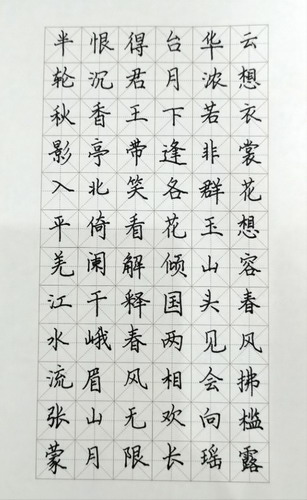 云想衣裳花想容春风拂槛露
华浓若非群玉山头见会向瑶
台月下逢各花倾国两相欢长
得君王带笑看解释春风无限
恨沉香亭北倚阑干峨眉山月
半轮秋影入平羌江水流张蒙